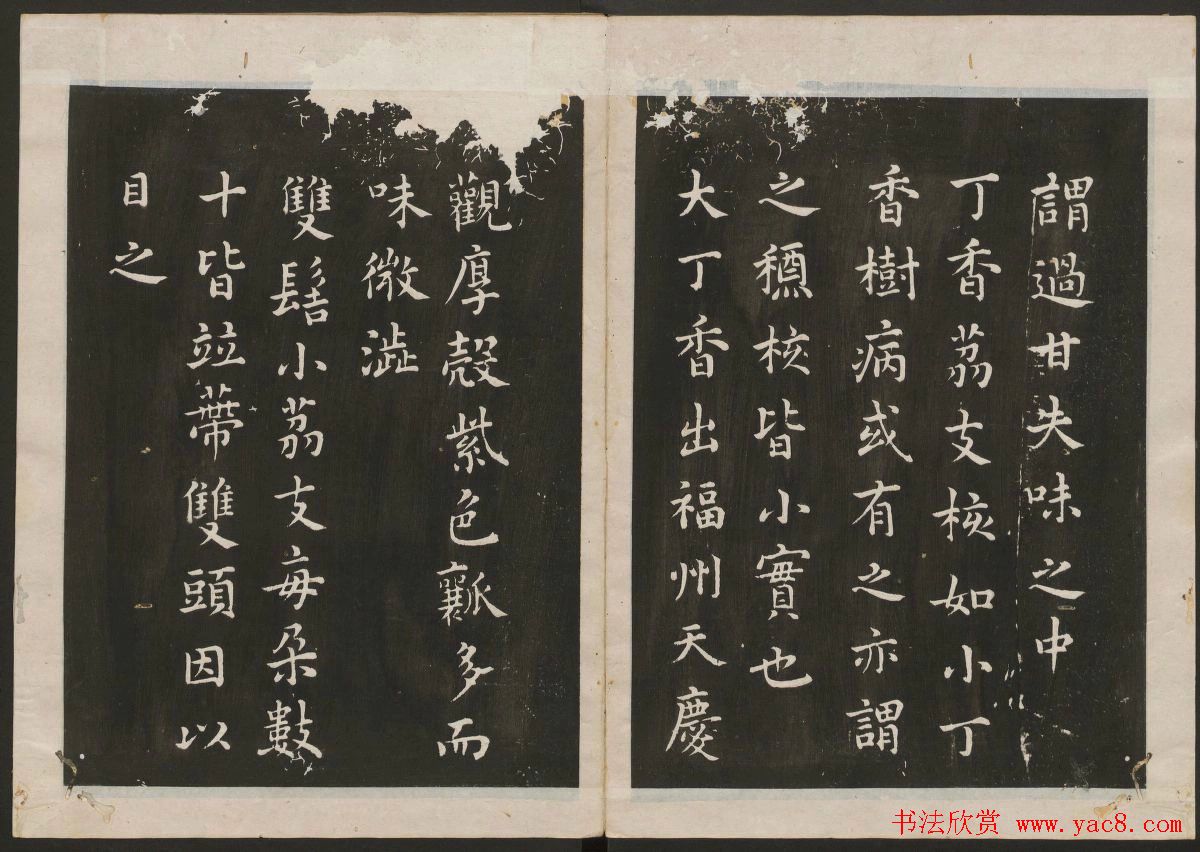 謂過甘失味之中
丁香茘支核如小丁
香樹病或有之亦謂
之穮核皆小實也
大丁香出福州天慶
觀厚殼紫色瓤多而
味微澁
雙髻小茘支每朶數
十皆竝蔕雙頭因以
目之
书法欣赏 www.yac8.com